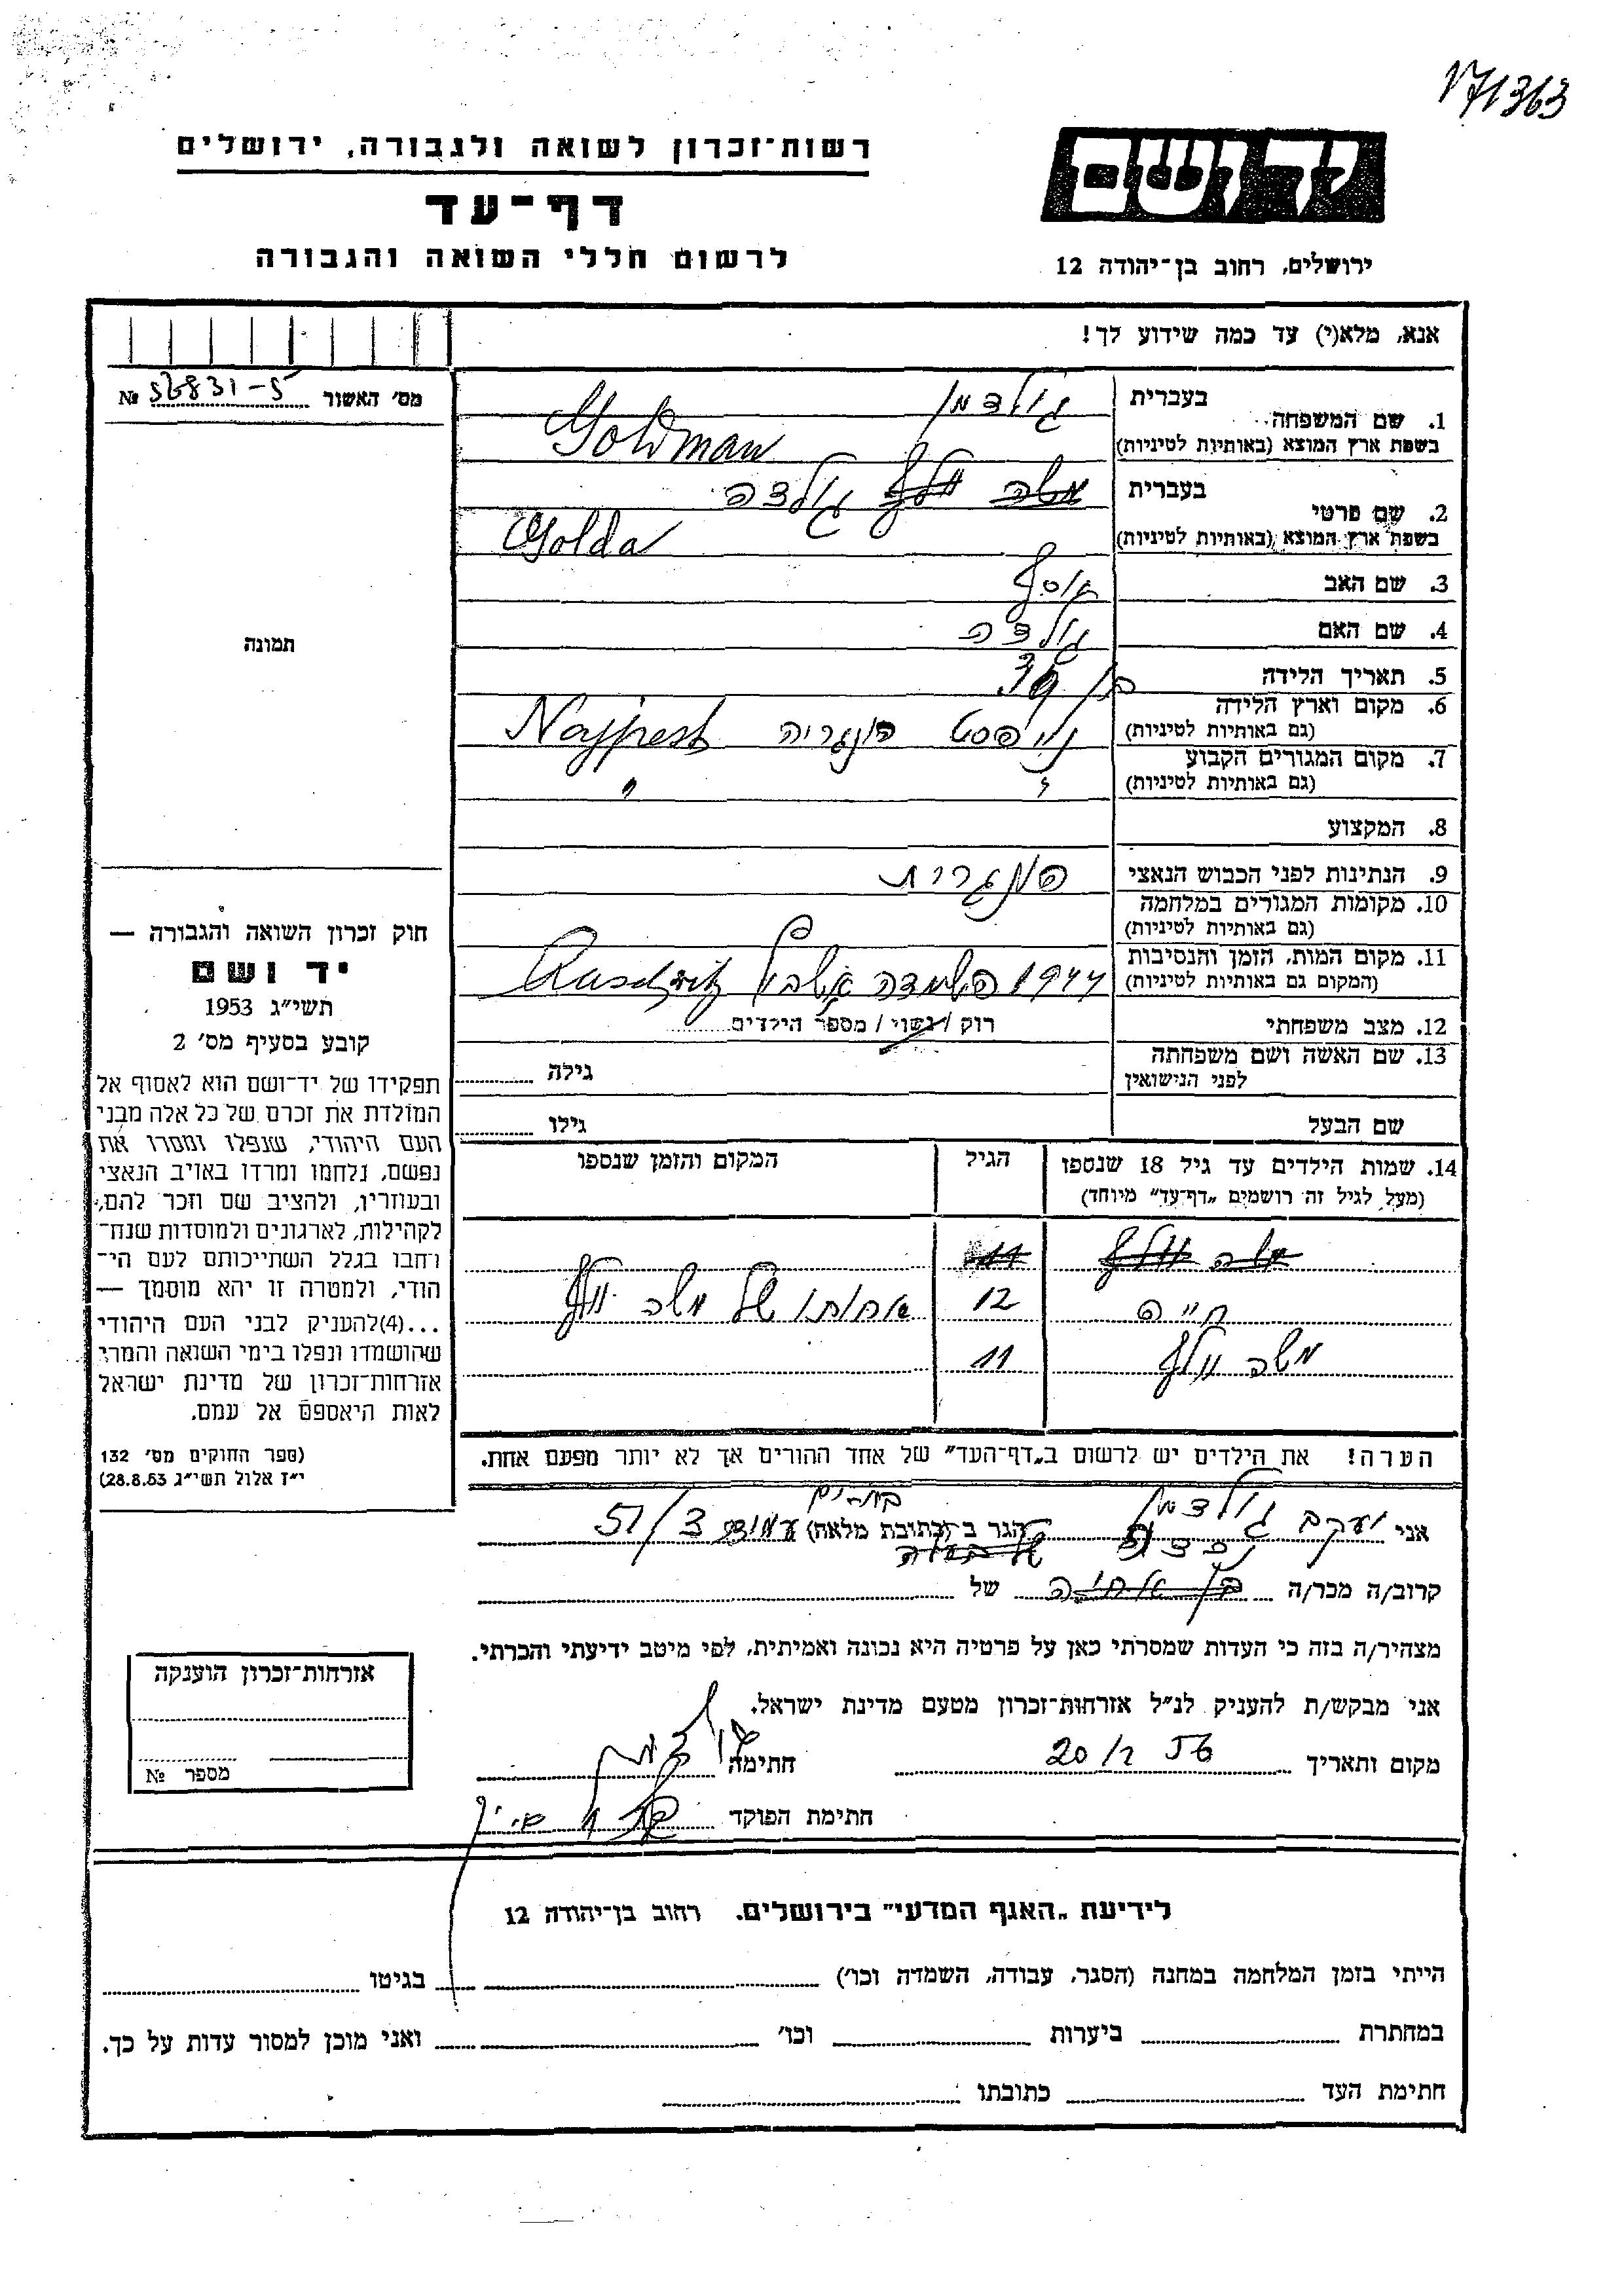 171363
רשות־זכרון לשואה ולגבורה, ירושלים
דף־עד
לרשום חללי השואה והגבורה
יד ושם
ירושלים, רחוב בן־יהודה 12
אנא, מלא(י) עד כמה שידוע לך!
מס׳ האשור 56831-5 №
תמונה
חוק זכרון השואה והגבורה —
יד ושם
תשי״ג 1953
קובע בסעיף מס׳ 2
תפקידו של יד־ושם הוא לאסוף אל
המולדת את זכרם של כל אלה מבני
העם היהודי, שנפלו ומסרו את
נפשם, נלחמו ומרדו באויב הנאצי
ובעוזריו, ולהציב שם וזכר להם,
לקהילות, לארגונים ולמוסדות שנח־
רחבו בגלל השתייכותם לעם הי־
הודי, ולמטרה זו יהא מוסמך —
...(4)להעניק לבני העם היהודי
שהושמדו ונפלו בימי השואה והמרי
אזרחות־זכרון של מדינת ישראל
לאות היאספם אל עמם.
(ספר החוקים מס׳ 132
י״ז אלול תשי״ג 28.8.53)
1. שם המשפחה בעברית גולדמן
בשפת ארץ המוצא (באותיות לטיניות) Goldman
2. שם פרטי בעברית משה וולף גולדה
בשפת ארץ המוצא (באותיות לטיניות) Golda
3. שם האב יוסף
4. שם האם גולדה
5. תאריך הלידה בן
6. מקום וארץ הלידה
(גם באותיות לטיניות) נייפסט הונגריה Najpest
7. מקום המגורים הקבוע
(גם באותיות לטיניות) " "
8. המקצוע
9. הנתינות לפני הכבוש הנאצי הונגרית
10. מקומות המגורים במלחמה
(גם באותיות לטיניות)
11. מקום המות, הזמן והנסיבות
(המקום גם באותיות לטיניות) 1944 השמדה Auschwitz
12. מצב משפחתי רוק / נשוי / מספר הילדים
13. שם האשה ושם משפחתה
לפני הנישואין גילה
שם הבעל גילו
14. שמות הילדים עד גיל 18 שנספו הגיל המקום והזמן שנספו
(מעל לגיל זה רושמים „דף־עד״ מיוחד)
משה וולף 11
חיים 12 אחותו של משה וולף
משה וולף 11
הערה! את הילדים יש לרשום ב„דף־העד״ של אחד ההורים אך לא יותר מפעם אחת.
אני יעקב גולדמן הגר ב (כתובת מלאה) 51/3
קרוב/ה מכר/ה של
מצהיר/ה בזה כי העדות שמסרתי כאן על פרטיה היא נכונה ואמיתית, לפי מיטב ידיעתי והכרתי.
אני מבקש/ת להעניק לנ״ל אזרחות־זכרון מטעם מדינת ישראל.
מקום ותאריך 20/2 56 חתימה
חתימת הפוקד
אזרחות־זכרון הוענקה
מספר №
לידיעת „האגף המדעי״ בירושלים. רחוב בן־יהודה 12
הייתי בזמן המלחמה במחנה (הסגר, עבודה, השמדה וכו׳) בגיטו
במחתרת ביערות וכו׳ ואני מוכן למסור עדות על כך.
חתימת העד כתובתו